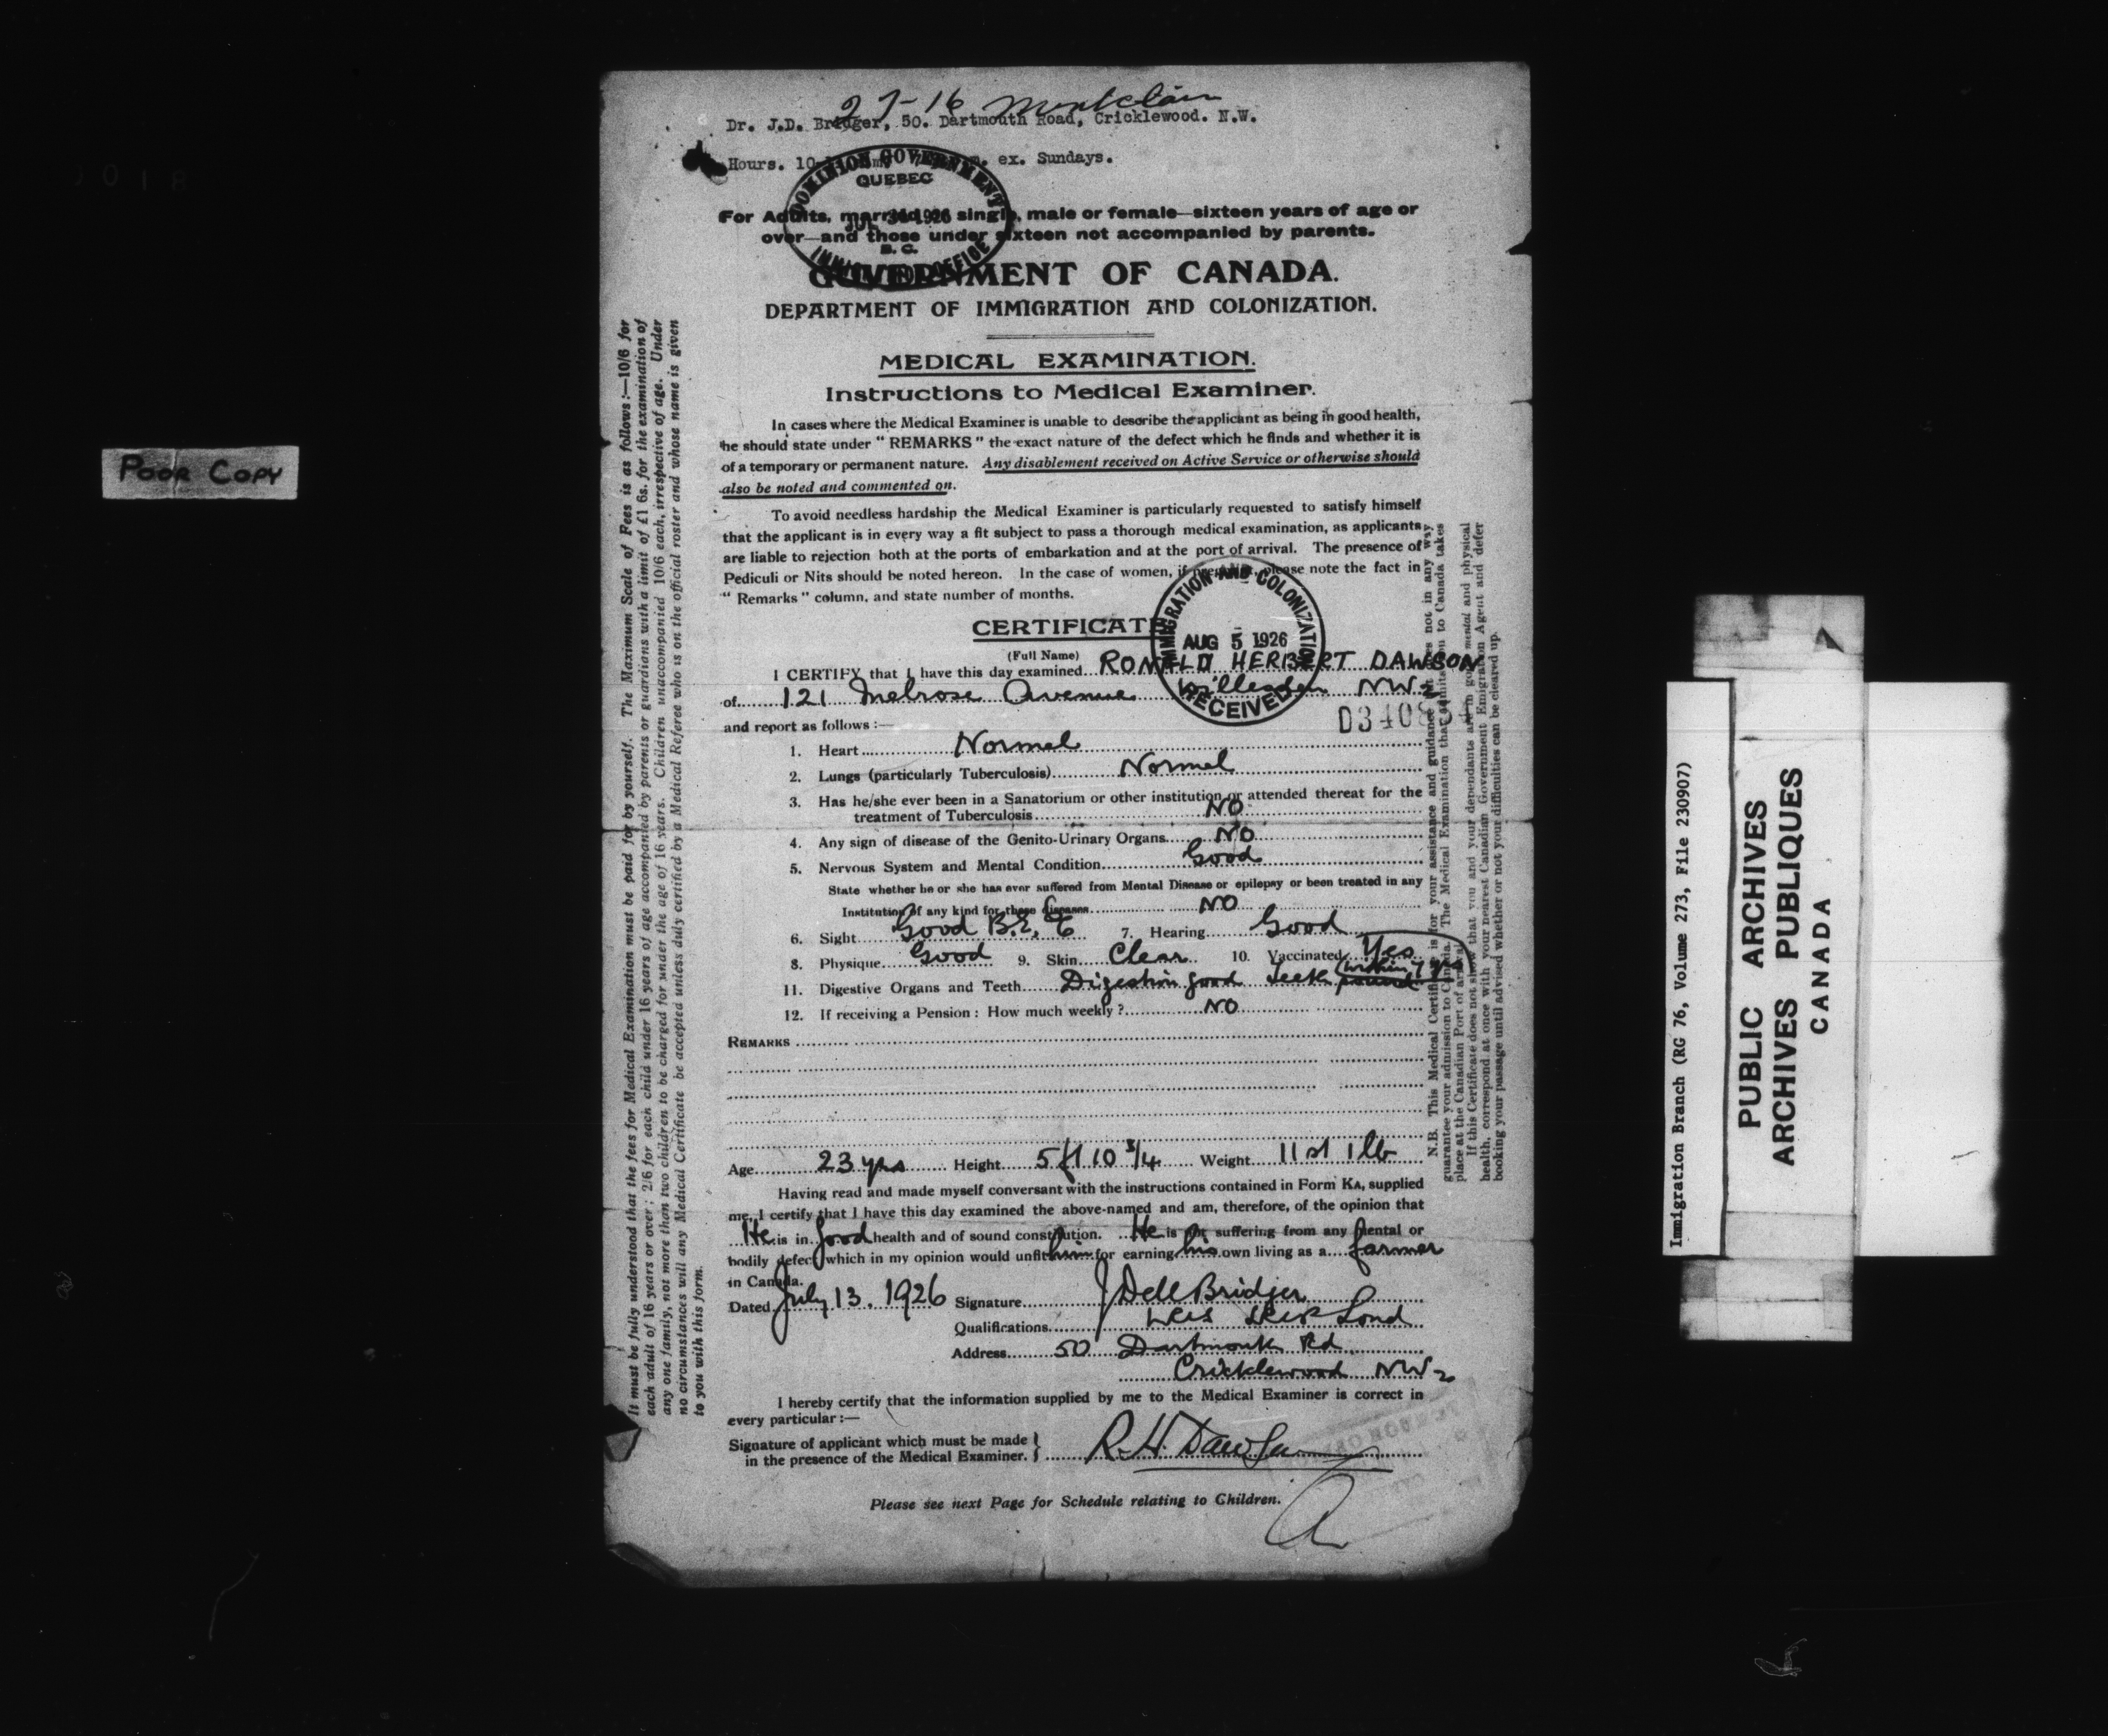 27-16 Montclair
Dr. J.D. Bridger, 50. Dartmouth Road, Cricklewood. N.W.
Hours. 10 ex. Sundays.
DOMINION GOVERNMENT
QUEBEC
JUL 1926
B.C.
IMMIGRATION OFFICE
For Adults, married or single, male or female—sixteen years of age or
over—and those under sixteen not accompanied by parents.
GOVERNMENT OF CANADA.
DEPARTMENT OF IMMIGRATION AND COLONIZATION.
MEDICAL EXAMINATION.
Instructions to Medical Examiner.
In cases where the Medical Examiner is unable to describe the applicant as being in good health,
he should state under "REMARKS" the exact nature of the defect which he finds and whether it is
of a temporary or permanent nature. Any disablement received on Active Service or otherwise should
also be noted and commented on.
To avoid needless hardship the Medical Examiner is particularly requested to satisfy himself
that the applicant is in every way a fit subject to pass a thorough medical examination, as applicants
are liable to rejection both at the ports of embarkation and at the port of arrival. The presence of
Pediculi or Nits should be noted hereon. In the case of women, if pregnant, please note the fact in
"Remarks" column, and state number of months.
IMMIGRATION AND COLONIZATION
AUG 5 1926
RECEIVED
CERTIFICATE
(Full Name)
I CERTIFY that I have this day examined RONALD HERBERT DAWSON
of 121 Melrose Avenue Willesden NW2
and report as follows :—
1. Heart Normal
2. Lungs (particularly Tuberculosis) Normal
3. Has he/she ever been in a Sanatorium or other institution or attended thereat for the
treatment of Tuberculosis NO
4. Any sign of disease of the Genito-Urinary Organs NO
5. Nervous System and Mental Condition Good
State whether he or she has ever suffered from Mental Disease or epilepsy or been treated in any
Institution of any kind for these diseases NO
6. Sight Good 7. Hearing Good
8. Physique Good 9. Skin Clear 10. Vaccinated Yes
(within 7 yrs
11. Digestive Organs and Teeth Digestion good teeth sound
12. If receiving a Pension : How much weekly ? NO
REMARKS
Age 23 yrs Height 5 ft 10 3/4 Weight 11 st 1 lb
Having read and made myself conversant with the instructions contained in Form KA, supplied
me, I certify that I have this day examined the above-named and am, therefore, of the opinion that
He is in good health and of sound constitution. He is not suffering from any mental or
bodily defect which in my opinion would unfit him for earning his own living as a farmer
in Canada.
Dated July 13. 1926 Signature J Dell Bridger
Qualifications Lond
Address 50 Dartmouth Rd
Cricklewood NW2
I hereby certify that the information supplied by me to the Medical Examiner is correct in
every particular :—
Signature of applicant which must be made
in the presence of the Medical Examiner. R.H. Dawson
Please see next Page for Schedule relating to Children.
It must be fully understood that the fees for Medical Examination must be paid for by yourself. The Maximum Scale of Fees is as follows :—10/6 for
each adult of 16 years or over ; 2/6 for each child under 16 years of age accompanied by parents or guardians with a limit of £1 6s. for the examination of
any one family, not more than two children to be charged for under the age of 16 years. Children unaccompanied 10/6 each, irrespective of age. Under
no circumstances will any Medical Certificate be accepted unless duly certified by a Medical Referee who is on the official roster and whose name is given
to you with this form.
N.B. This Medical Certificate is for your assistance and guidance does not in any way
guarantee your admission to Canada. The Medical Examination that admits you to Canada takes
place at the Canadian Port of arrival.
If this Certificate does not show that you and your dependants are in good mental and physical
health, correspond at once with your nearest Canadian Government Emigration Agent and defer
booking your passage until advised whether or not your difficulties can be cleared up.
POOR COPY
Immigration Branch (RG 76, Volume 273, File 230907)
PUBLIC ARCHIVES
ARCHIVES PUBLIQUES
CANADA